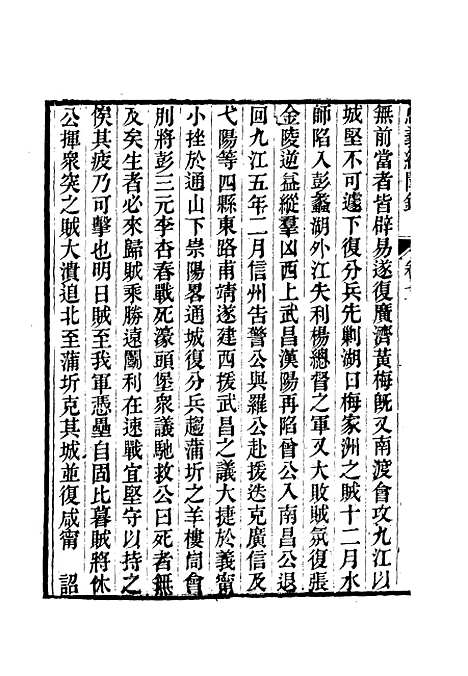 忠義紀聞錄　卷十
無前當者皆辟易遂復廣濟黃梅旣又南渡會攻九江以
城堅不可遽下復分兵先剿湖口梅家洲之賊十二月水
師陷入彭蠡湖外江失利楊總督之軍又大敗賊氛復張
金陵逆益縱羣凶西上武昌漢陽再陷曾公入南昌公退
回九江五年二月信州告警公與羅公赴援迭克廣信及
弋陽等四縣東路甫靖遂建西援武昌之議大捷於義甯
小挫於通山下崇陽畧通城復分兵趨蒲圻之羊樓峝會
別將彭三元李杏春戰死濠頭堡衆議馳救公曰死者無
及矣生者必來歸賊乘勝遠鬭利在速戰宜堅守以持之
俟其疲乃可擊也明日賊至我軍憑壘自固比暮賊將休
公揮衆突之賊大潰追北至蒲圻克其城並復咸甯　詔